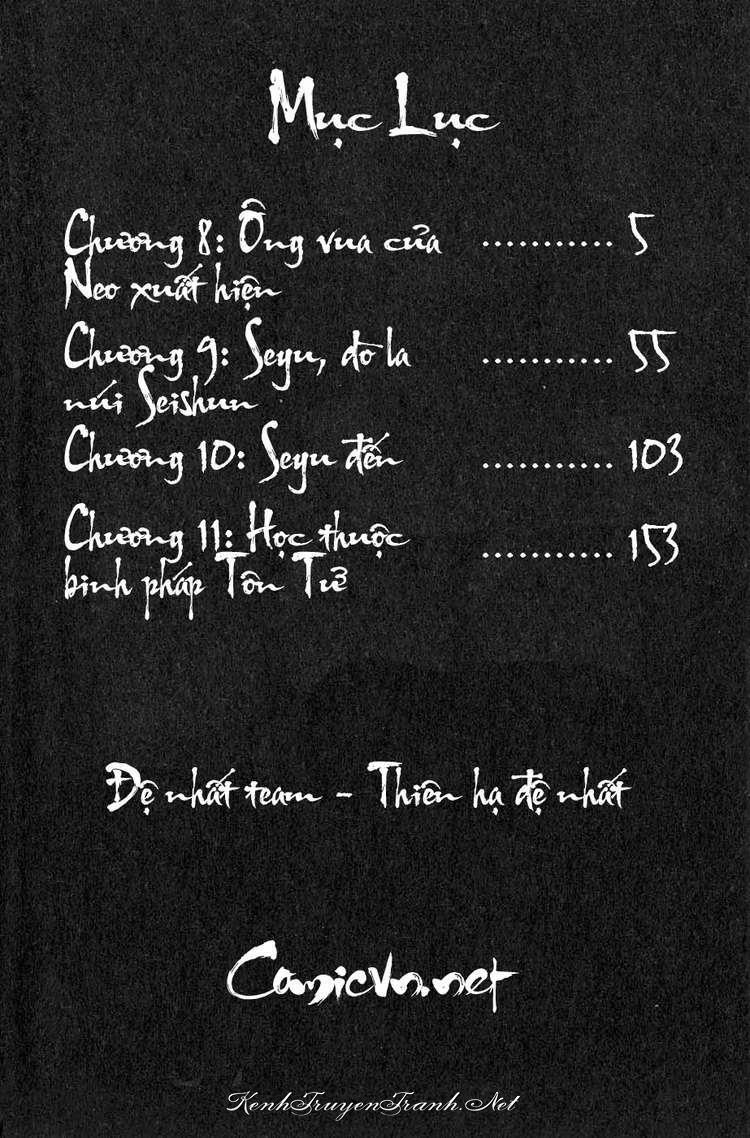 Mục Lục
Chương 8: Ông vua của ........... 5
Neo xuất hiện
Chương 9: Seyu, đó la ........... 55
núi Seishun
Chương 10: Seyu đến ........... 103
Chương 11: Học thuộc ........... 153
binh pháp Tôn Tử
Đệ nhất team - Thiên hạ đệ nhất
Comicvn.net
KenhTruyenTranh.Net